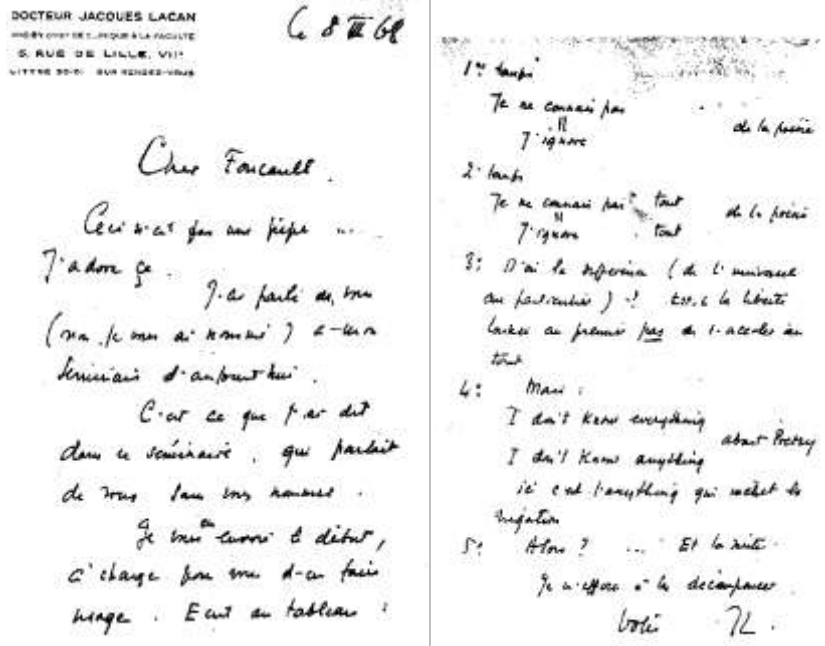 DOCTEUR JACQUES LACAN
5, RUE DE LILLE, VIIᵉ
LITTRÉ SUR RENDEZ-VOUS
Ce 8 III 68
Cher Foucault.
Ceci n'est pas une pipe ...
J'adore ça.
J'ai parlé de vous
(non, je vous ai nommé) à mon
séminaire d'aujourd'hui.
C'est ce que j'ai dit
dans ce séminaire, qui parlait
de vous sans vous nommer.
Je vous en envoie le début,
à charge pour vous d'en faire
usage. Ecrit au tableau :
1er temps
Je ne connais pas
||
J'ignore
de la poésie
2e temps
Je ne connais pas tout
||
J'ignore tout
de la poésie
3: D'où la différence (de l'universel
au particulier) -? Est-ce la liberté
laissée au premier pas de s'accoler au
tout
4: Mais :
I don't know everything
I don't know anything
about Poetry
ici c'est l'anything qui la
négation
5: Alors ? ... Et la suite.
Je m'efforce à la décomposer
Votre JL.